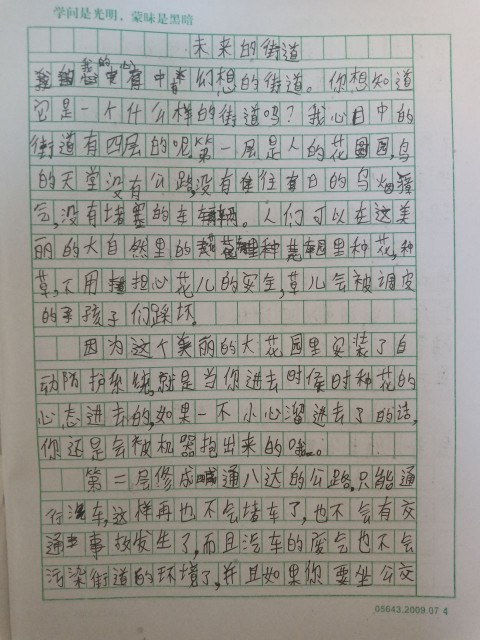 学问是光明，蒙昧是黑暗
未来的街道
我的心中有幻想的街道。你想知道
它是一个什么样的街道吗？我心目中的
街道有四层的呢第一层是人的花园，鸟
的天堂没有公路，没有往日的乌烟瘴
气，没有堵塞的车辆。人们可以在这美
丽的大自然里的花园里种花，种
草，不用担心花儿的安全，草儿会被调皮
的孩子们踩坏。
因为这个美丽的大花园里安装了自
动防护系统，就是当你进去时候时种花的
心态进去的，如果一不小心溜进去了的话，
你还是会被机器抱出来的哦。
第二层修成通八达的公路，只能通
行汽车，这样再也不会堵车了，也不会有交
通事故发生了，而且汽车的废气也不会
污染街道的环境了，并且如果你要坐公交
05643.2009.07 4